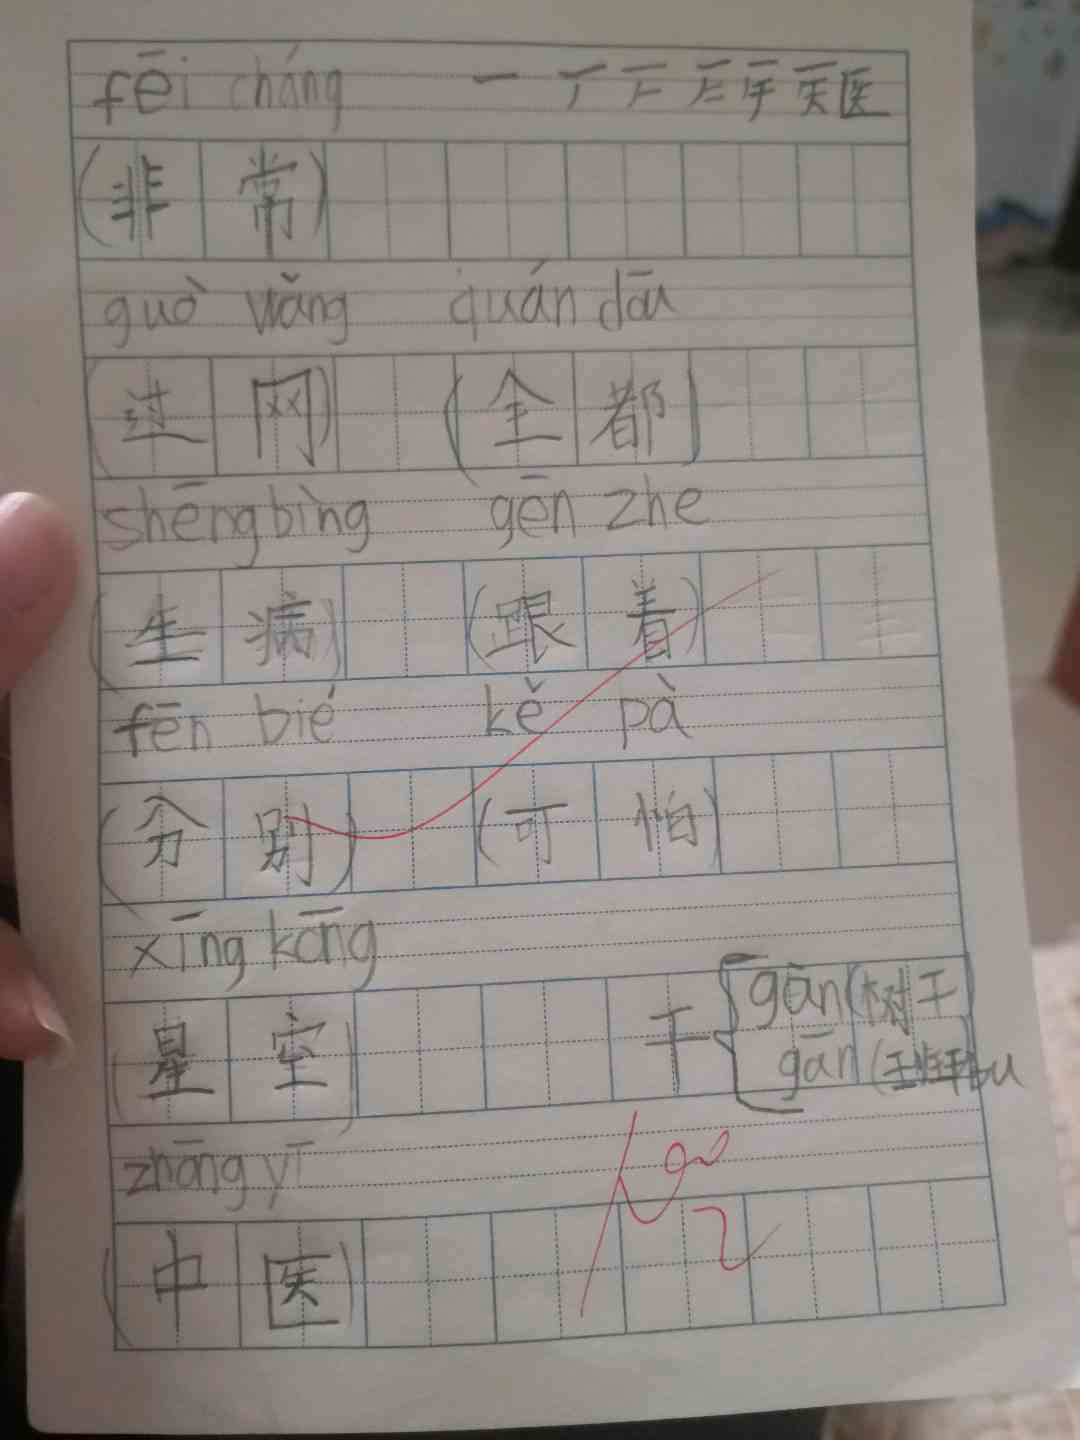 fēi cháng 一 丆 匚 乍 乎 医 医
(非常)
guò wǎng quán dōu
(过网) (全都)
shēng bìng gēn zhe
(生病) (跟着)
fēn bié kě pà
(分别) (可怕)
xīng kōng
(星空) 干 gān (树干)
gān
zhōng yī
100
(中医)